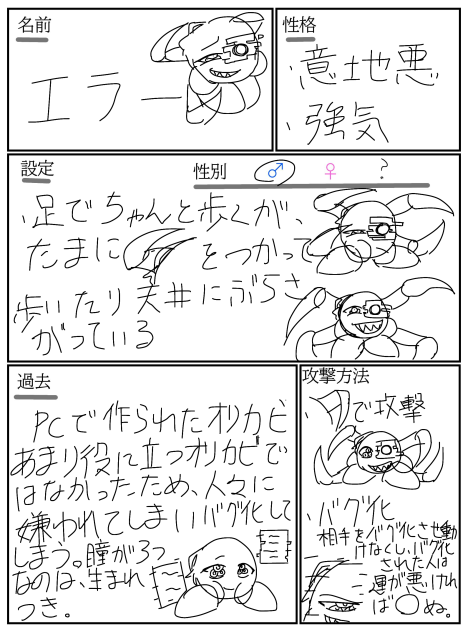 名前
エラー
性格
・意地悪
・強気
設定
性別 ♂ ♀ ?
・足でちゃんと歩くが、
たまに をつかって
歩いたり天井にぶらさ
がっている
過去
PCで作られたオリカビ
あまり役に立つオリカビで
はなかったため、人々に
嫌われてしまいバグ化して
しまう。瞳が3つ
なのは、生まれ
つき。
攻撃方法
・爪で攻撃
・バグ化
相手をバグ化させ動
けなくし、バグ化
された人は
運が悪いけれ
ば〇ぬ。